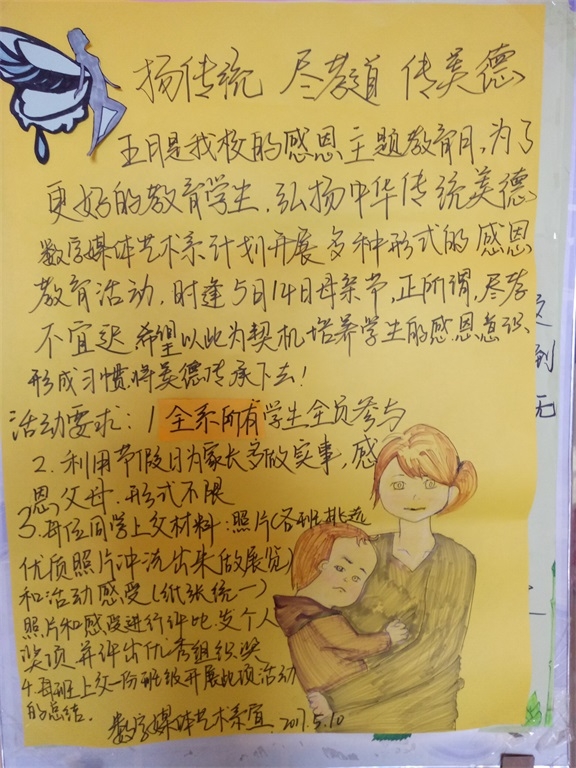 扬传统 尽孝道 传美德
五月是我校的感恩主题教育月,为了
更好的教育学生,弘扬中华传统美德
数字媒体艺术系计划开展多种形式的感恩
教育活动,时逢5月14日母亲节,正所谓,尽孝
不宜迟 希望以此为契机培养学生的感恩意识、
形成习惯将美德传承下去!
活动要求:1 全系所有学生全员参与
2.利用节假日为家长多做实事,感
恩父母.形式不限
3.每位同学上交材料:照片(各班挑选
优质照片冲洗出来做展览)
和活动感受(纸张统一)
照片和感受进行评比,发个人
奖项并评出优秀组织奖
4.每班上交一份班级开展此项活动
的总结.
数字媒体艺术系宣 2017.5.10
到
无